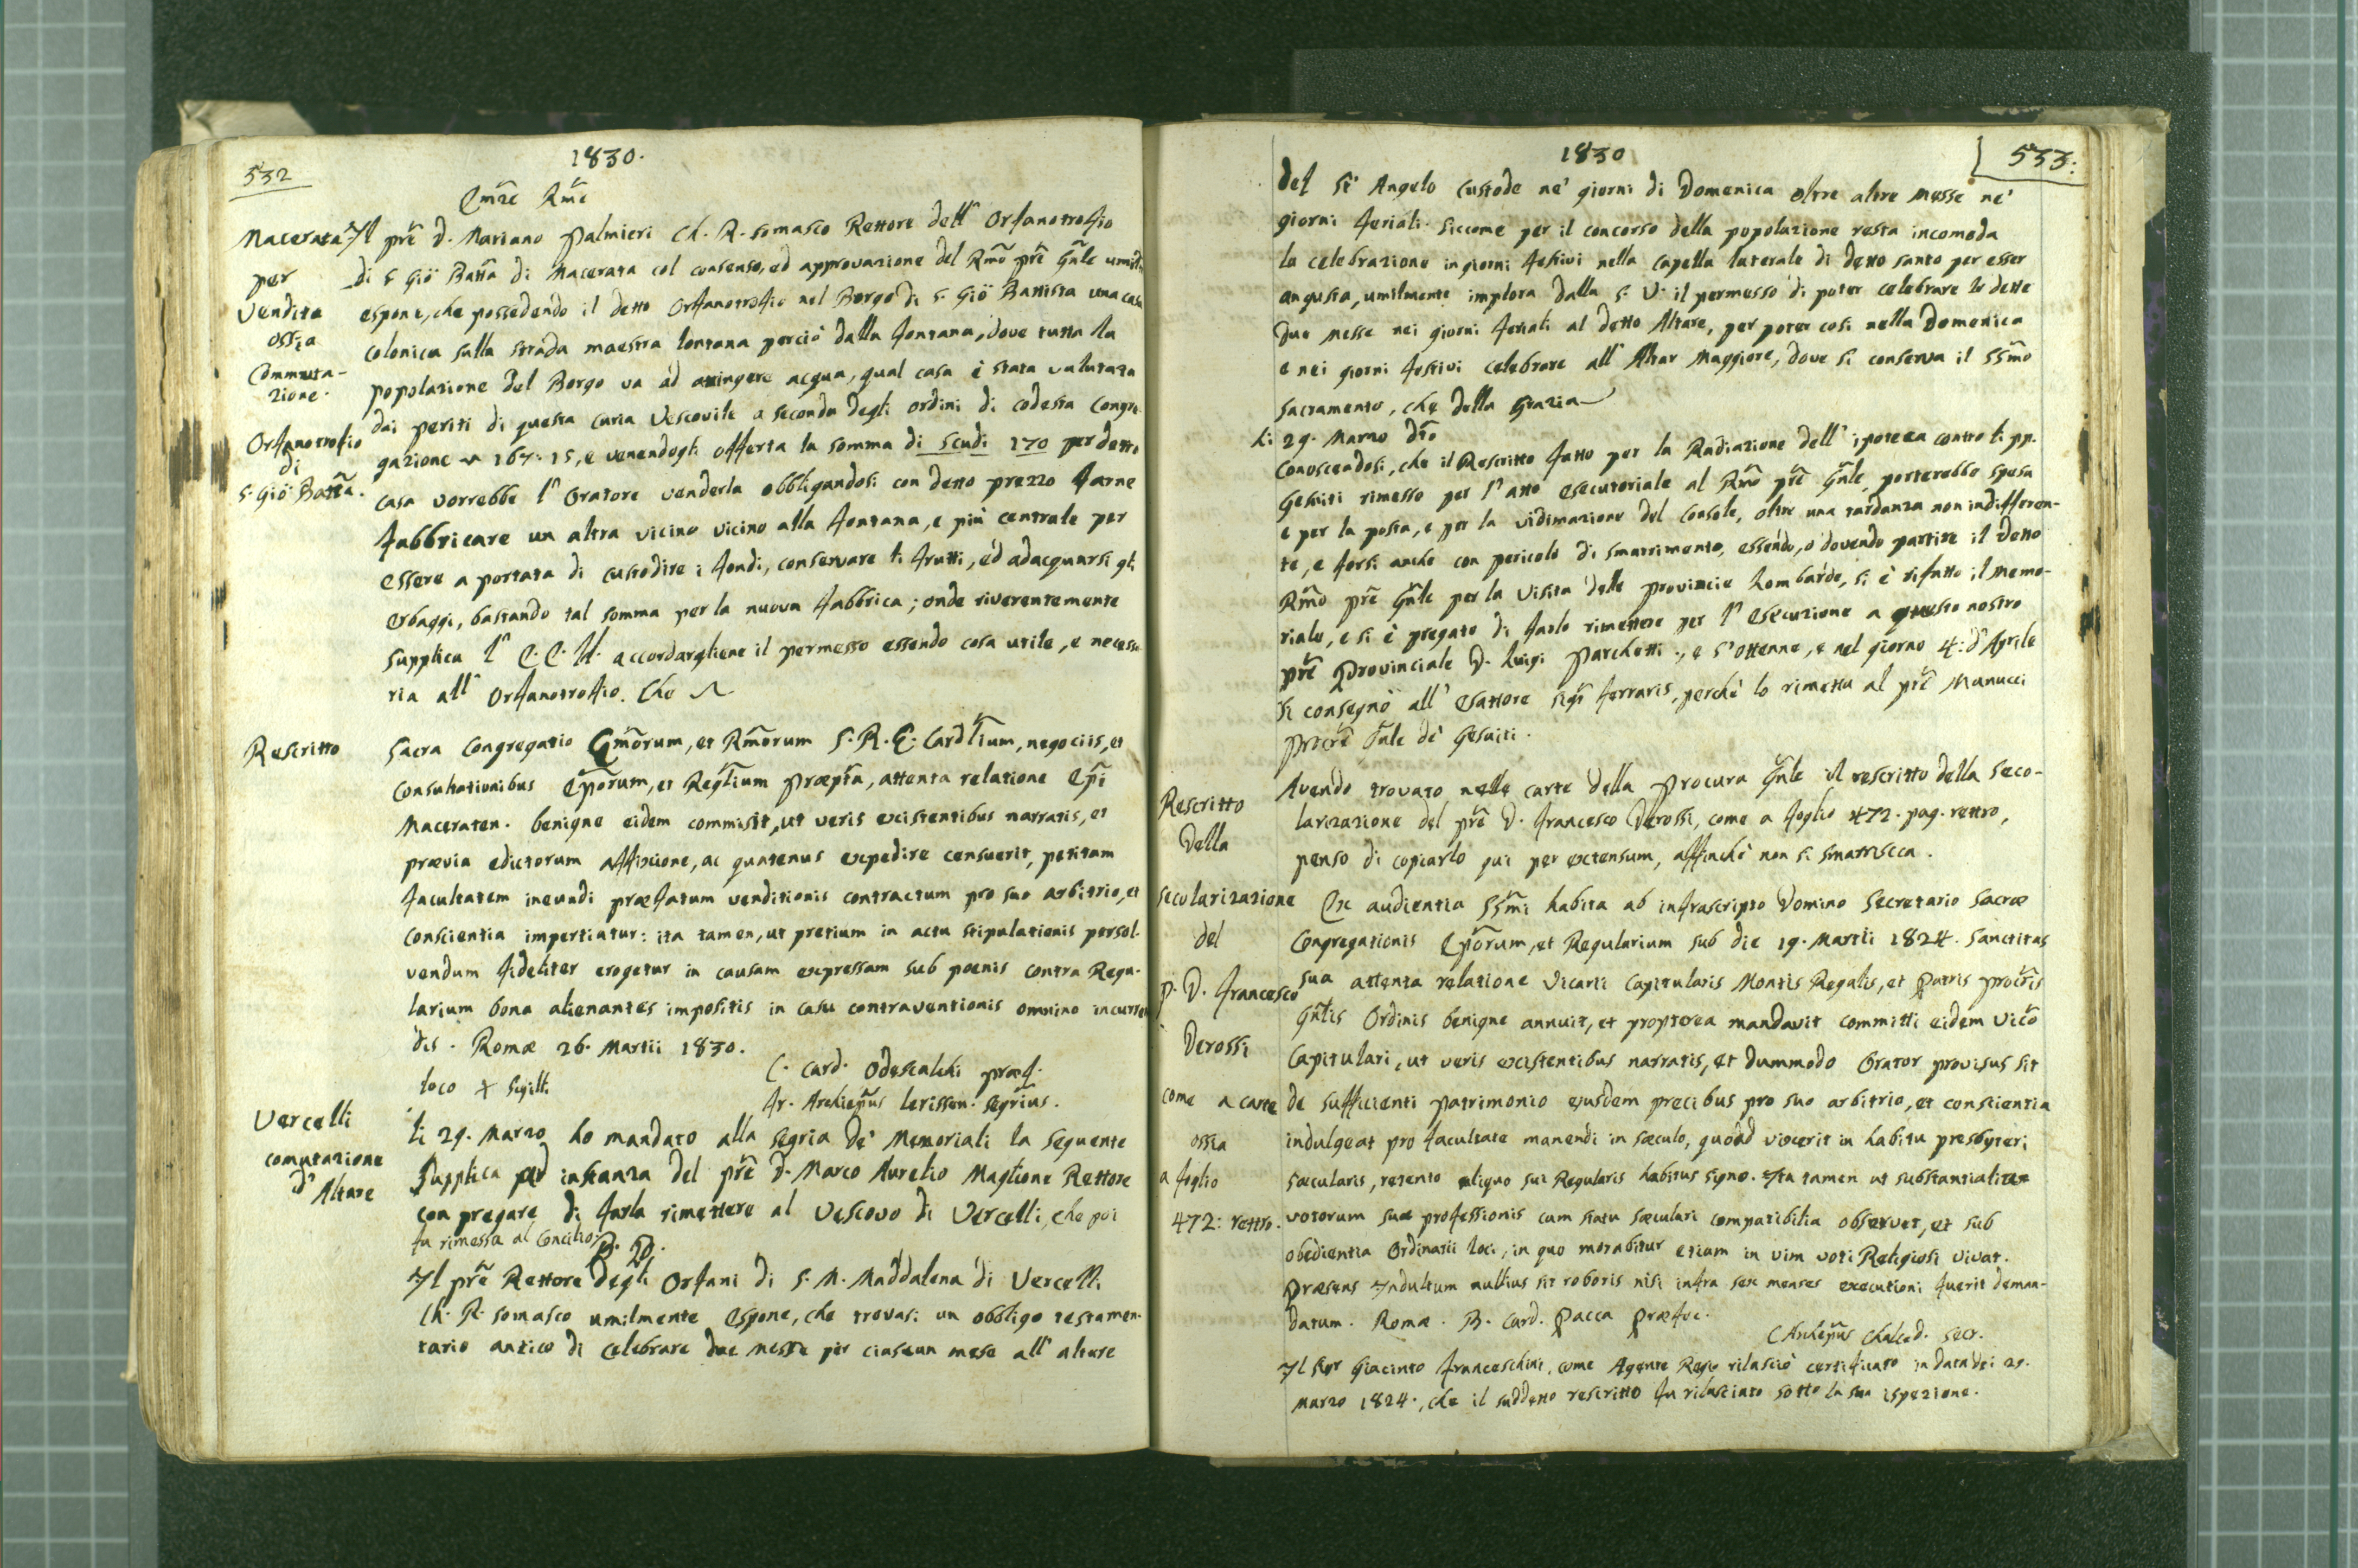 532
1830.
Em̃e Rm̃e
Macerata
per
Vendita
ossia
Commuta-
zione.
Orfanotrofio
di
S. Gio Batt̃a.
Il pr̃e D. Mariano Palmieri Ch. R. Somasco Rettore dell' Orfanotrofio
di S. Gio Batt̃a di Macerata col consenso, ed approvazione del Rm̃o pr̃e Gñle umilm̃
espone, che possedendo il detto Orfanotrofio nel Borgo di S. Gio Battista una casa
colonica sulla strada maestra lontana perciò dalla fontana, dove tutta la
popolazione del Borgo va ad attingere acqua, qual casa è stata valutata
dai periti di questa curia Vescovile a seconda degli ordini di codesta Congre-
gazione 167:15, e venendogli offerta la somma di scudi 170 per detta
casa vorrebbe l' Oratore venderla obbligandosi con detto prezzo farne
fabbricare un altra vicino vicino alla fontana, e più centrale per
essere a portata di custodire i fondi, conservare li frutti, ed adacquarsi gli
erbaggi, bastando tal somma per la nuova fabbrica; onde riverentemente
supplica l' E. E. V. accordargliene il permesso essendo cosa utile, e necessa
ria all' Orfanotrofio. Che
Rescritto
Sacra Congregatio Em̃orum, et Rm̃orum S. R. E. Cardl̃ium, negociis, et
Consultationibus Ep̃orum, et Regl̃ium præpt̃a, attenta relatione Ep̃i
Maceraten. benigne eidem commisit, ut veris existentibus narratis, et
prævia edictorum affixione, ac quatenus expedire censuerit, petitam
facultatem ineundi præfatum venditionis contractum pro suo arbitrio, et
conscientia impertiatur: ita tamen, ut pretium in actu stipulationis persol-
vendum fideliter erogetur in causam expressam sub poenis contra Regu-
larium bona alienantes impositis in casu contraventionis omnino incurren
dis. Romæ 26. Martii 1830.
C. Card. Odescalchi præf.
loco + Sigilli
Fr. Archiep̃us Ierissen. Segrius.
Vercelli
comutazione
d' Altare
li 29. Marzo ho mandato alla Segria de' Memoriali la seguente
Supplica ad instanza del pr̃e D. Marco Aurelio Maglione Rettore
con pregare di farla rimettere al Vescovo di Vercelli, che poi
fu rimessa al Concilio
B. P.
Il pr̃e Rettore degli Orfani di S. M. Maddalena di Vercelli
Ch. R. Somasco umilmente espone, che trovasi un obbligo testamen-
tario antico di celebrare due messe per ciascun mese all' altare
1830
533:
del S̃t̃ Angelo Custode ne' giorni di Domenica oltre altre messe ne'
giorni feriali. Siccome per il concorso della popolazione resta incomoda
la celebrazione in giorni festivi nella capella laterale di detto santo per esser
angusta, umilmente implora dalla S. V. il permesso di poter celebrare le dette
due messe nei giorni feriali al detto Altare, per poter così nella Domenica
e nei giorni festivi celebrare all' Altar Maggiore, dove si conserva il SSm̃o
Sacramento, che della Grazia
li 29. Marzo dt̃o
Conoscendosi, che il Rescritto fatto per la Radiazione dell' ipoteca contro li pp.
Gesuiti rimesso per l' atto esecutoriale al Rm̃o pr̃e Gñle, porterebbe spesa
e per la posta, e per la vidimazione del Console, oltre una tardanza non indifferen-
te, e forsi anche con pericolo di smarrimento, essendo, o dovendo partire il detto
Rm̃o pr̃e Gñle per la visita delle provincie Lombarde, si è rifatto il Memo-
riale, e si è pregato di farlo rimettere per l' esecuzione a questo nostro
pr̃e Provinciale D. Luigi Parchetti., e s'ottenne, e nel giorno 4: d'Aprile
si consegnò all' esattore Sigr̃ Ferraris, perchè lo rimetta al pr̃e Manucci
procr̃e Gñle de' Gesuiti.
Rescritto
della
secolarizazione
del
P. D. Francesco
Derossi
come a carte
ossia
a foglio
472: rettro.
Avendo trovato nelle carte della Procura Gñle il rescritto della seco-
larizazione del pr̃e D. Francesco Derossi, come a foglio 472. pag. rettro,
penso di copiarlo qui per extensum, affinchè non si smarrisca.
Ex audientia SSm̃i habita ab infrascripto Domino Secretario Sacræ
Congregationis Ep̃orum, et Regularium sub die 19. Martii 1824. Sanctitas
sua attenta relatione Vicarii Capitularis Montis Regalis, et Patris Procr̃is
Gñlis Ordinis benigne annuit, et propterea mandavit committi eidem Vic̃o
Capitulari, ut veris existentibus narratis, et dummodo Orator provisus sit
de sufficienti patrimonio ejusdem precibus pro suo arbitrio, et conscientia
indulgeat pro facultate manendi in sæculo, quoad vixerit in habitu presbyteri
sæcularis, retento aliquo sui Regularis habitus signo. Ita tamen ut substantialiter
votorum suæ professionis cum statu sæculari compatibilia observet, et sub
obedientia Ordinarii loci, in quo morabitur etiam in vim voti Religiosi vivat.
Præsens Indultum nullius sit roboris nisi infra sex menses executioni fuerit deman-
datum. Romæ. B. Card. Pacca Præfec.
C Archiep̃us Chalced. Secr.
Il Sigr Giacinto Franceschini, come Agente Regio rilasciò certificato in data dei 29.
Marzo 1824., che il suddetto rescritto fu rilasciato sotto la sua ispezione.